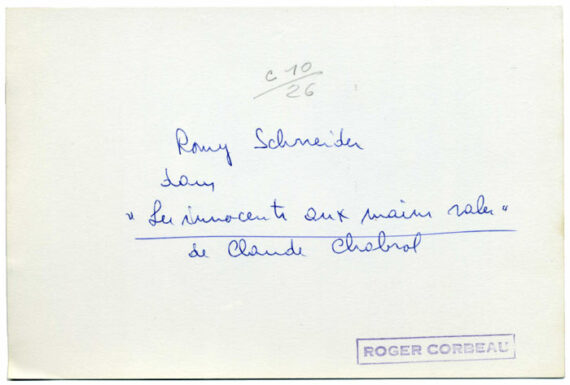 c 10/26
Romy Schneider
dans
"Les innocents aux mains sales"
de Claude Chabrol
ROGER CORBEAU